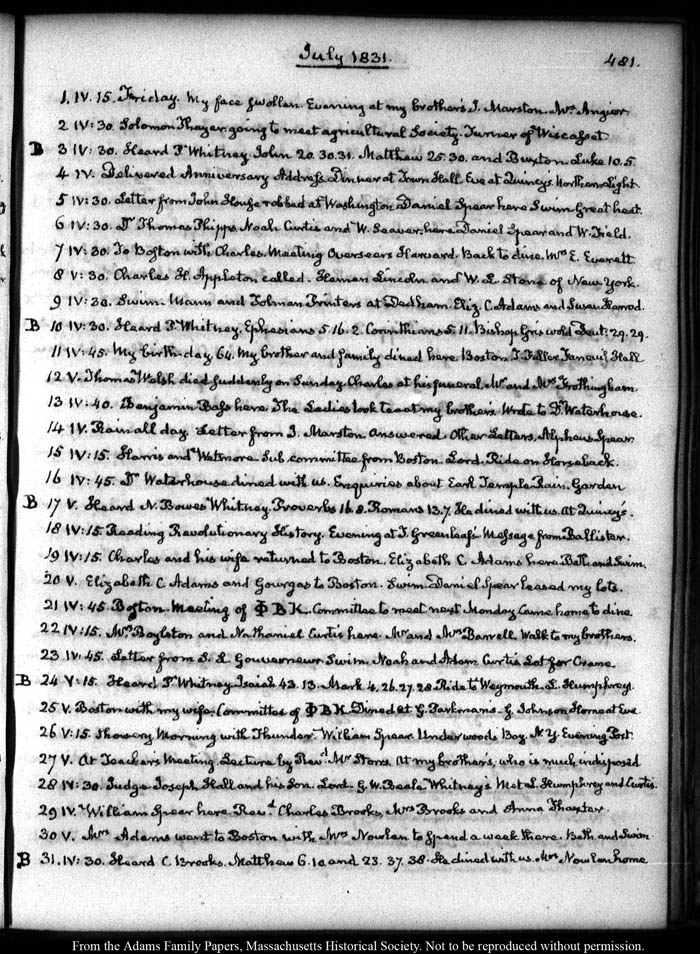 July 1831.
481.
1. IV. 15. Friday. My face swollen. Evening at my brother's J. Marston. Mrs. Angier
2 IV: 30. Solomon Thayer, going to meet agricultural Society. Turner of Wiscasset
B 3 IV: 30. Heard P. Whitney. John 20. 30.31. Matthew 25. 30. and Buxton. Luke 10.5.
4 IV. Delivered Anniversary Address. Dinner at Town Hall. Eve at Quincy's. Northern Light.
5 IV: 30. Letter from John House robbed at Washington. Daniel Spear here Swim Great heat.
6 IV: 30. Dr. Thomas Phipps, Noah Curtis and W. Seaver, here. Daniel Spear and W. Field.
7 IV: 30. To Boston with Charles. Meeting Overseers Harvard. Back to dine. Mrs E. Everett
8 V: 30. Charles H. Appleton called. Heman Lincoln and W. L. Stone of New York.
9 IV: 30. Swim. Mann and Tolman Printers at Dedham. Eliz. C. Adams and Susan Harrod.
B 10 IV: 30. Heard P. Whitney. Ephesians 5. 16. 2. Corinthians 5. 11. Bishop Griswold Deut. 29. 29.
11 IV: 45. My birth-day 64. My brother and family dined here. Boston. T. Fuller Faneuil Hall
12 V. Thomas Welsh died suddenly on Sunday. Charles at his funeral. Mr and Mrs Frothingham.
13 IV: 40. Benjamin Bass here. The Ladies took tea at my brother's. Wrote to Dr. Waterhouse.
14 IV. Rain all day. Letter from J. Marston answered. Other Letters. Alpheus Spear.
15 IV: 15. Harris and Wetmore. Sub committee from Boston. Lord. Ride on Horseback.
16 IV: 45. Dr Waterhouse dined with us. Enquiries about Earl Temple. Rain. Garden
B 17 V. Heard N. Bowes Whitney. Proverbs 16. 8. Romans 13.7. He dined with us. At Quincy's.
18 IV: 15 Reading Revolutionary History. Evening at T. Greenleaf's Message from Ballister.
19 IV: 15. Charles and his wife returned to Boston. Elizabeth C. Adams here Bath and Swim.
20 V. Elizabeth C Adams and Gourgas to Boston. Swim. Daniel Spear leased my lots.
21 IV: 45. Boston. Meeting of Φ B K. Committee to meet next Monday. Came home to dine
22 IV: 15. Mrs Boylston and Nathaniel Curtis here. Mr and Mrs Barrell. Walk to my brothers.
23 IV: 45. Letter from S. L Gouverneur. Swim. Noah and Adam Curtis. Lot for Crane
B 24 V: 15. Heard P. Whitney. Isaiah 43. 13. Mark 4. 26. 27. 28. Ride to Weymouth. L. Humphrey.
25 V. Boston with my wife. Committee of Φ B K. Dined at G. Parkman's. G. Johnson. Home at Eve
26 V: 15. Showery Morning with Thunder. William Spear. Underwoods Boy. N. Y. Evening Post.
27 V. At Teachers Meeting. Lecture by Revd. Mr Storrs. At my brother's, who is much indisposed
28 IV: 30. Judge Joseph Hall and his Son. Lord. G. W. Beale. Whitney's Met L. Humphrey and Curtis.
29 IV. William Spear here. Revd. Charles Brooks, Mrs Brooks and Anna Thaxter.
30 V. Mrs. Adams went to Boston with Mrs Nowlan to spend a week there. Bath and Swim
B 31. IV: 30. Heard C. Brooks. Matthew 6. 10 and 23. 37. 38. He dined with us. Mrs Nowlan home
From the Adams Family Papers, Massachusetts Historical Society. Not to be reproduced without permission.